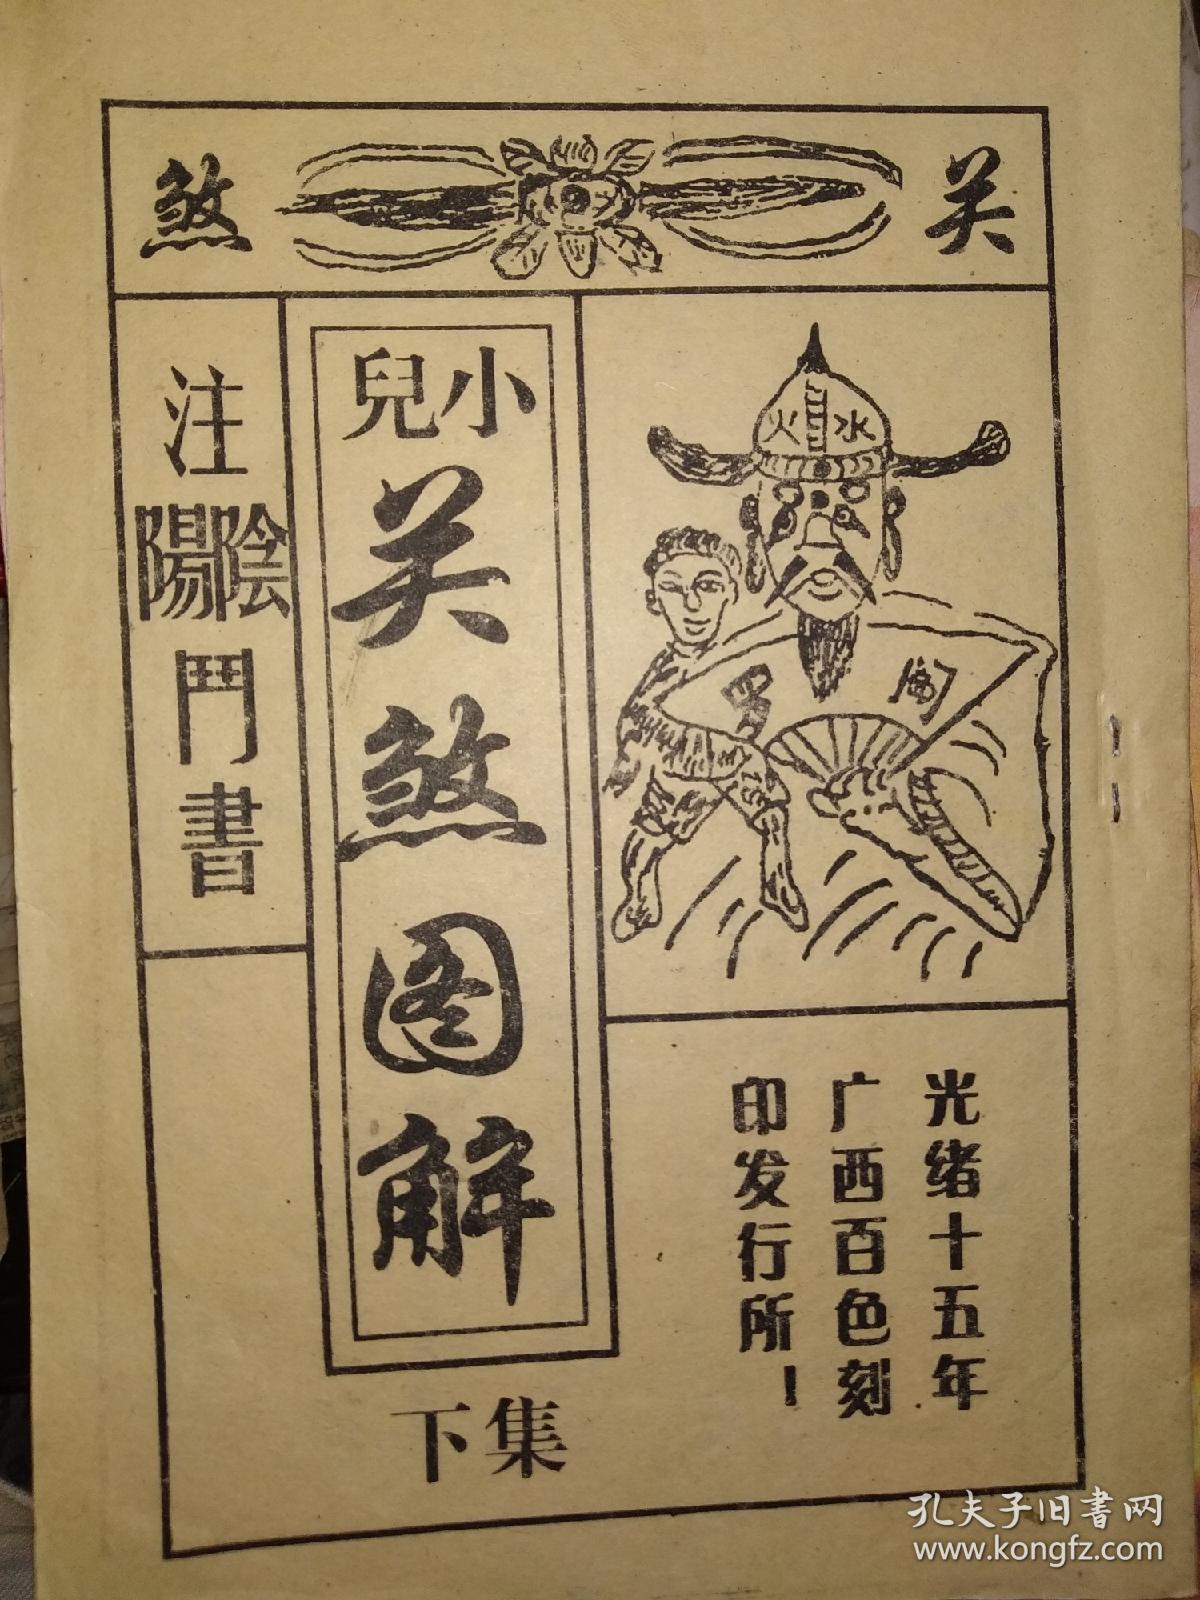 关煞
水火
光绪十五年
广西百色刻
印发行所！
小兒
关煞图解
集下
注陰陽鬥書
孔夫子旧書网
www.kongfz.com